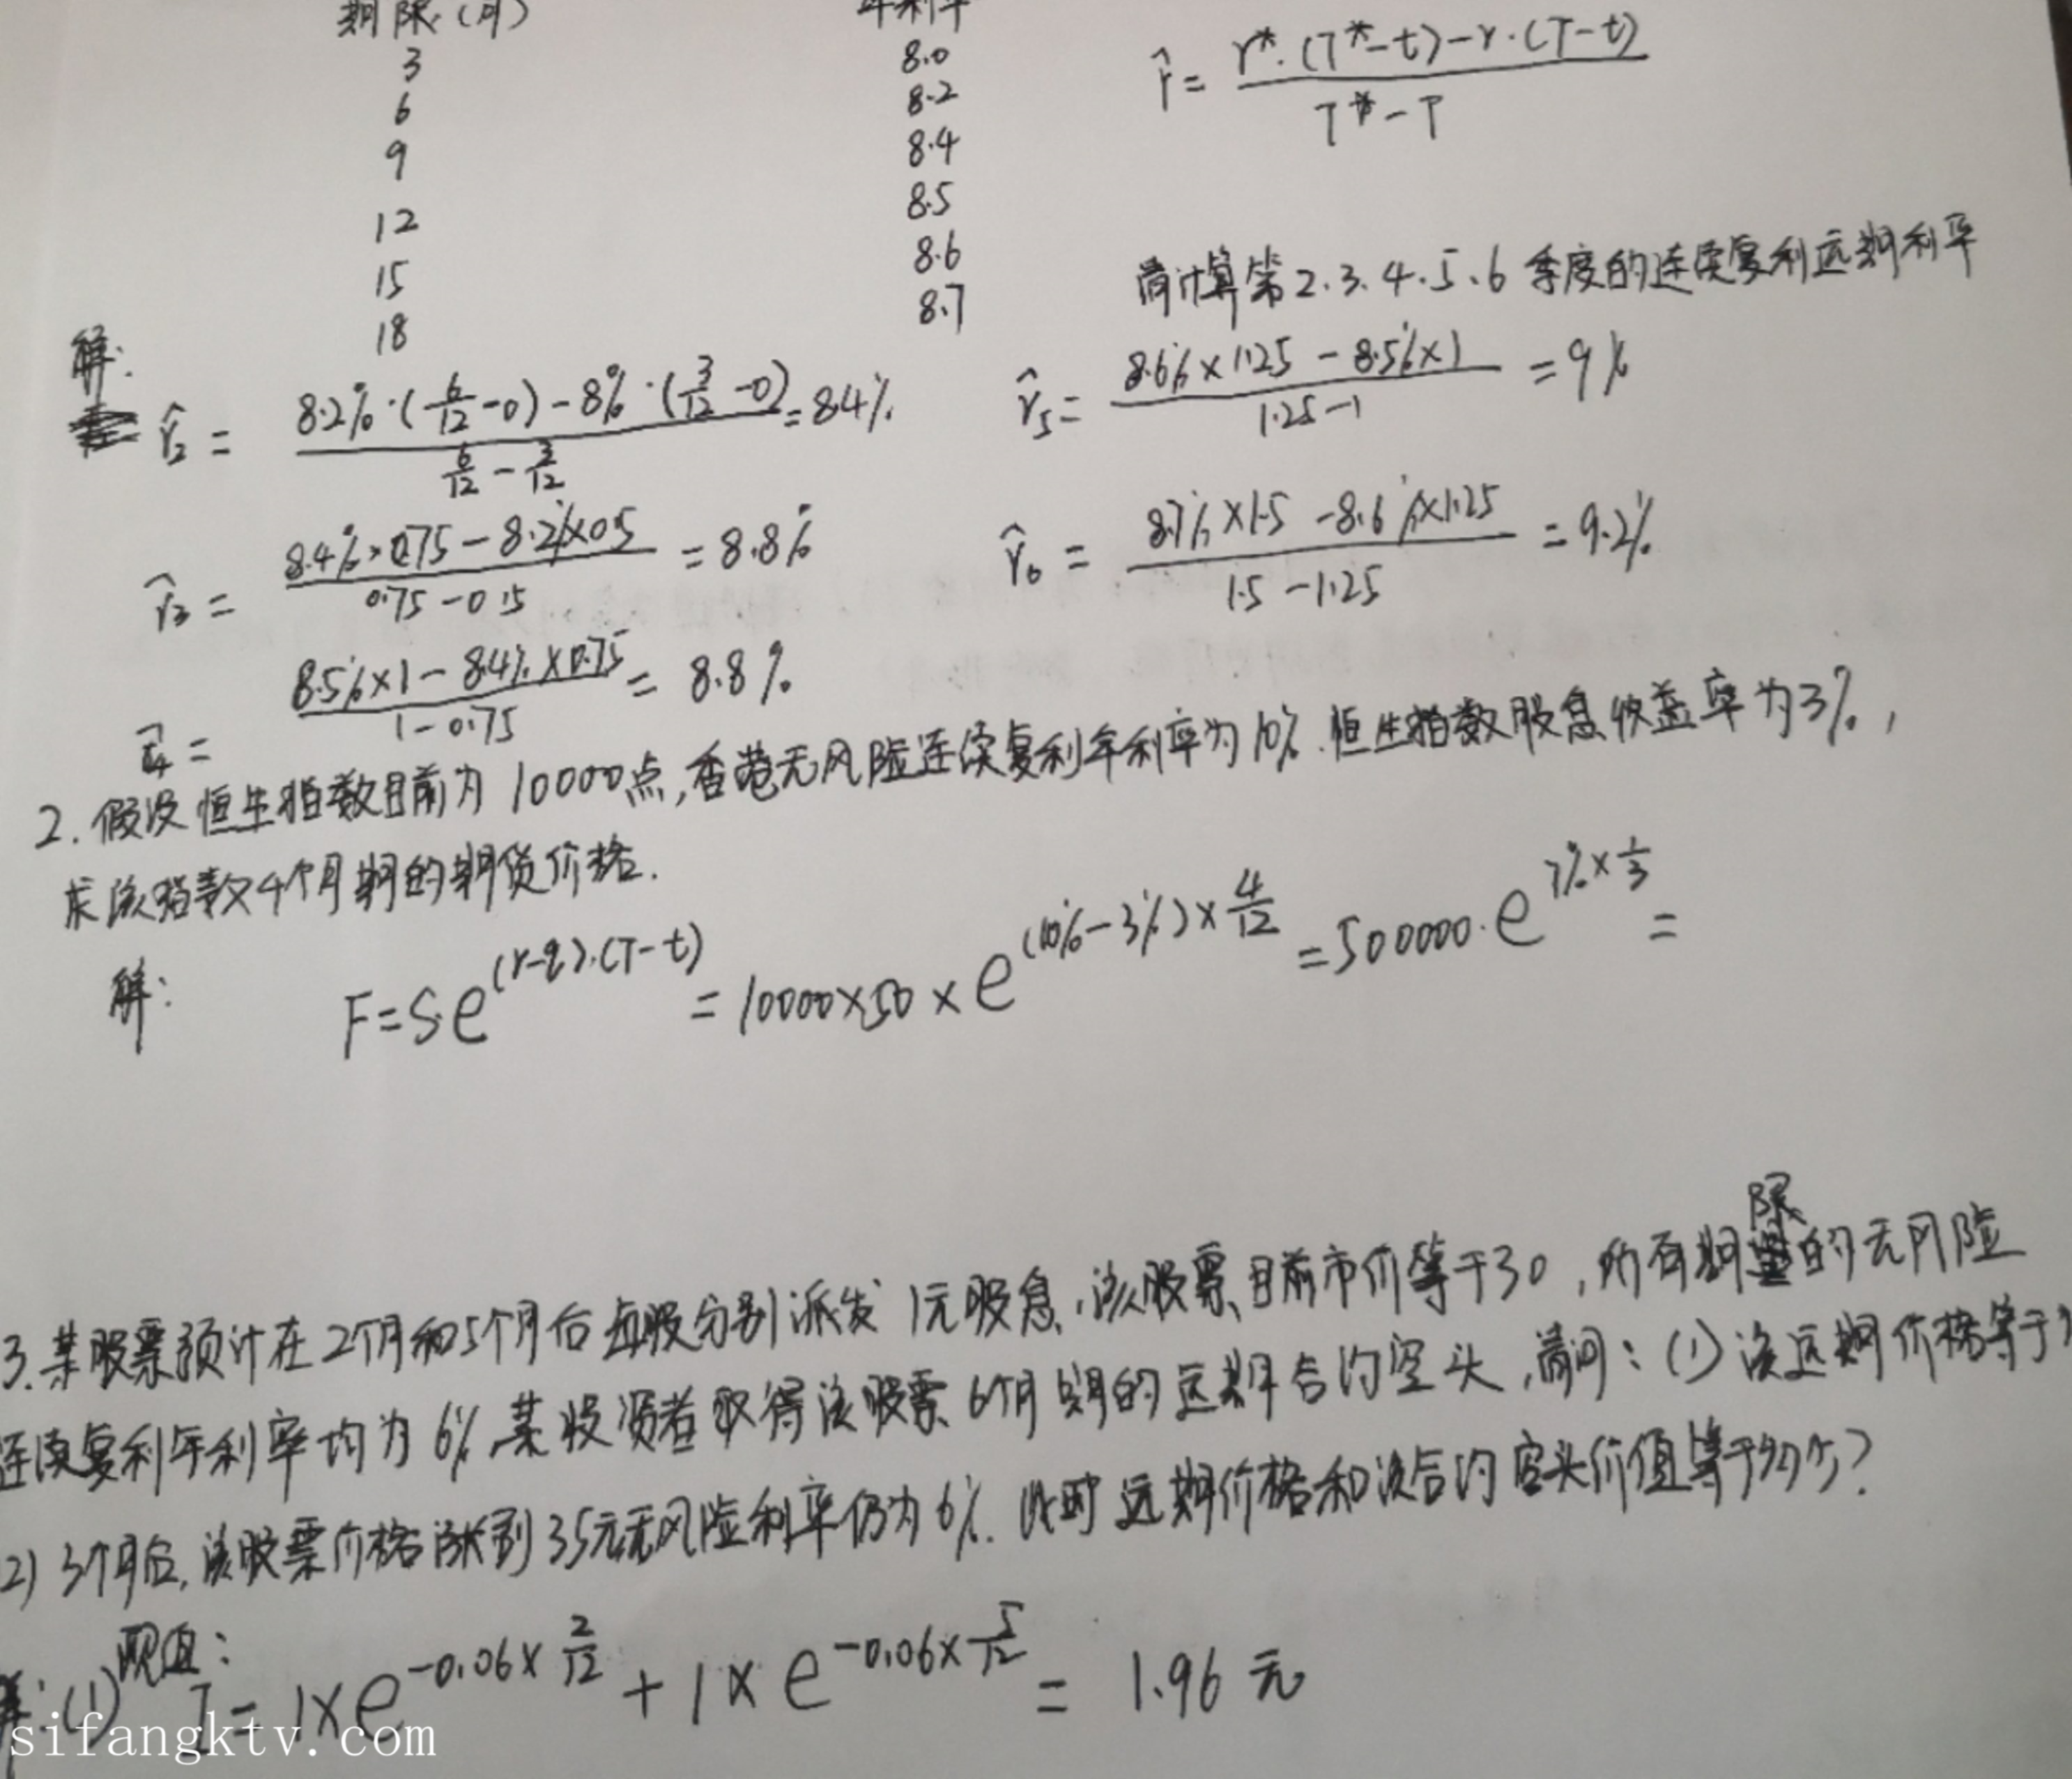 期限(月) 年利率
3 8.0
6 8.2
9 8.4
12 8.5
15 8.6
18 8.7
r̂ = (r*·(T*-t)-r·(T-t))/(T*-T)
请计算第2.3.4.5.6季度的连续复利远期利率
解:
r̂₂ = (8.2%·(6/12-0)-8%·(3/12-0))/(6/12-3/12) = 8.4%
r̂₅ = (8.6%×1.25-8.5%×1)/(1.25-1) = 9%
r̂₃ = (8.4%×0.75-8.2%×0.5)/(0.75-0.5) = 8.8%
r̂₆ = (8.7%×1.5-8.6%×1.25)/(1.5-1.25) = 9.2%
r̂₄ = (8.5%×1-8.4%×0.75)/(1-0.75) = 8.8%
2. 假设恒生指数目前为10000点,香港无风险连续复利年利率为10%.恒生指数股息收益率为3%,
求该指数4个月期的期货价格.
解: F=S·e^((r-q)·(T-t)) = 10000×50×e^((10%-3%)×4/12) = 500000·e^(7%×1/3) =
3.某股票预计在2个月和5个月后每股分别派发1元股息,该股票目前市价等于30,所有期限的无风险
连续复利年利率均为6%,某投资者取得该股票6个月期的远期合约空头,请问:(1)该远期价格等于
2) 3个月后,该股票价格涨到35元无风险利率仍为6%.此时远期价格和该合约空头价值等于多少?
(1) 现值:
I = 1×e^(-0.06×2/12) + 1×e^(-0.06×5/12) = 1.96元
sifangktv.com